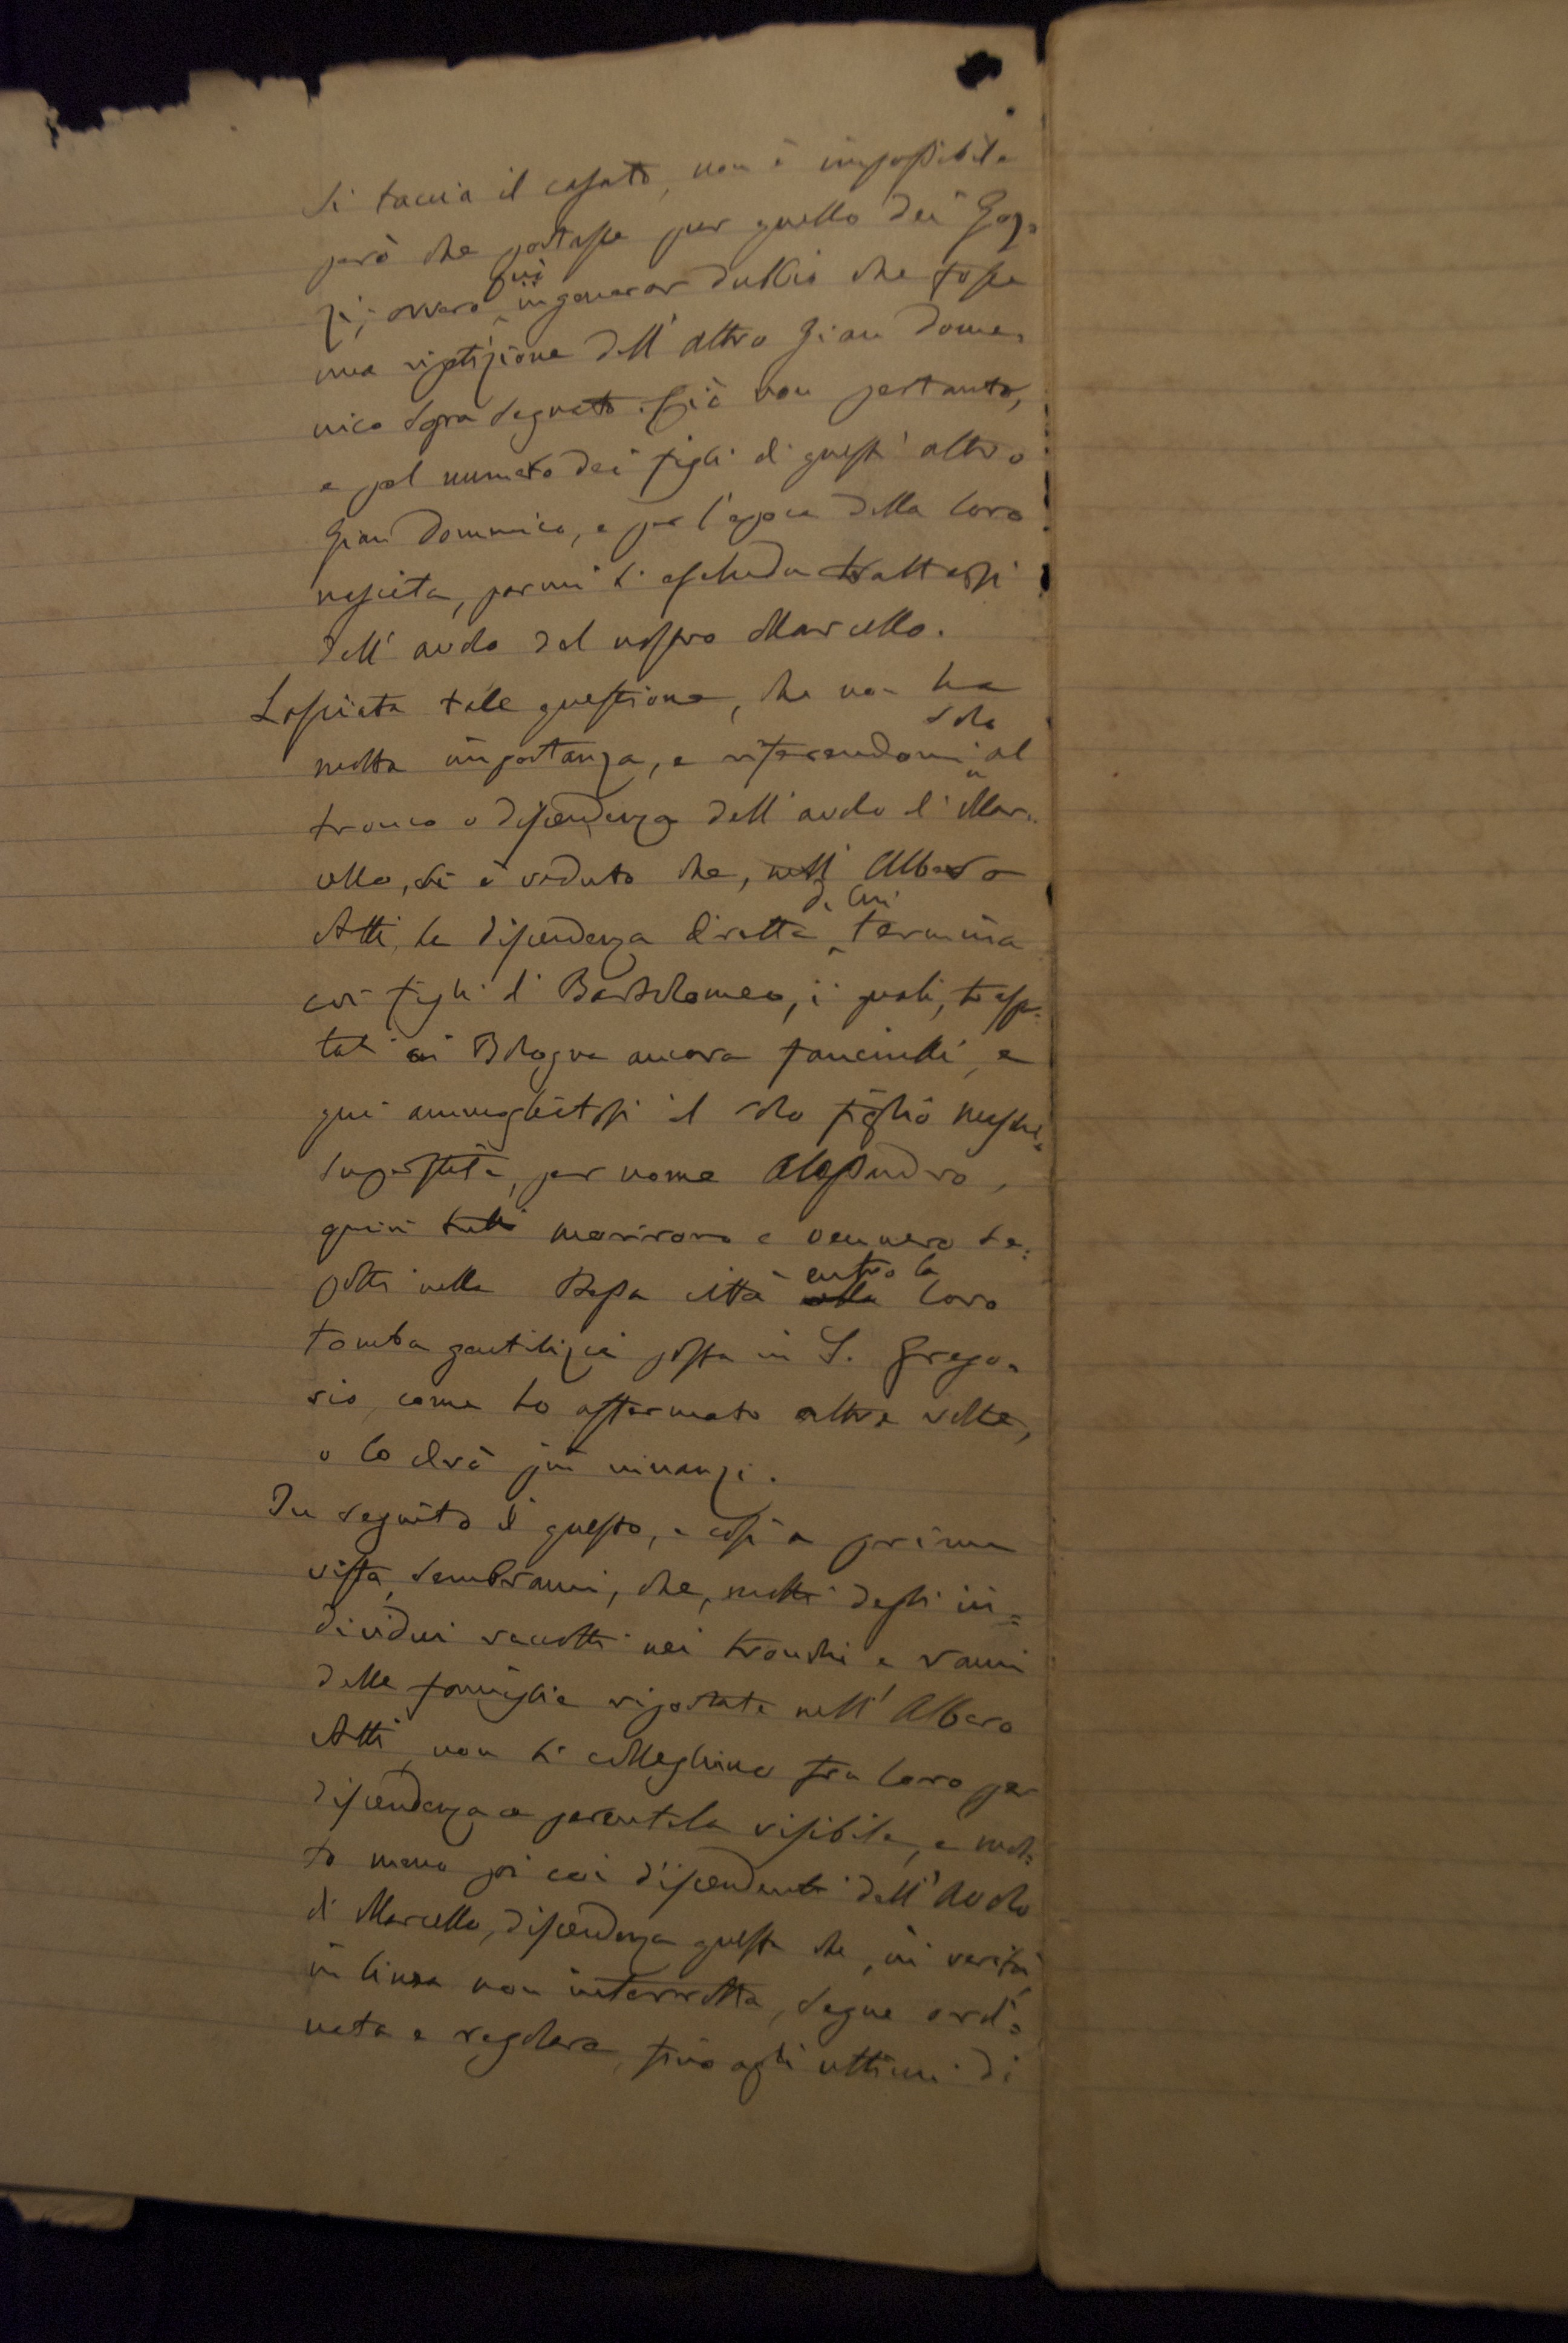 si taccia il casato, non è impossibile
però che portasse pur quello dei Goz=
zi; ovvero può ingenerar dubbio che fosse
una ripetizione dell' altro Gian Dome=
nico sopra segnato. Ciò non pertanto,
e pel numero dei figli di quest' altro
Gian Domenico, e per l'epoca della loro
nascita, parmi si escluda trattarsi
dell' avolo del nostro Marcello.
Lasciata tale questione, che non ha
molta importanza, e riferendomi solo al
tronco o discendenza dell' avolo di Mar=
cello, si è veduto che, nell' Albero
Atti, la discendenza diretta di lui termina
coi figli di Bartolomeo, i quali, traspor=
tati in Bologna ancora fanciulli, e
qui ammogliatosi il solo figlio maschio
superstite, per nome Alessandro,
quivi tutti morirono e vennero se=
polti nella stessa città entro la loro
tomba gentilizia posta in S. Grego=
rio, come ho affermato altre volte,
o lo dirò più innanzi.
In seguito di questo, e così a prima
vista, sembrami, che, molti degli in=
dividui raccolti nei tronchi e rami
delle famiglie riportate nell' Albero
Atti, non si colleghino fra loro per
discendenza o parentela visibile, e mol=
to meno poi coi discendenti dell' Avolo
di Marcello, discendenza questa che, in verità,
in linea non interrotta, segue ordi=
nata e regolare, fino agli ultimi di